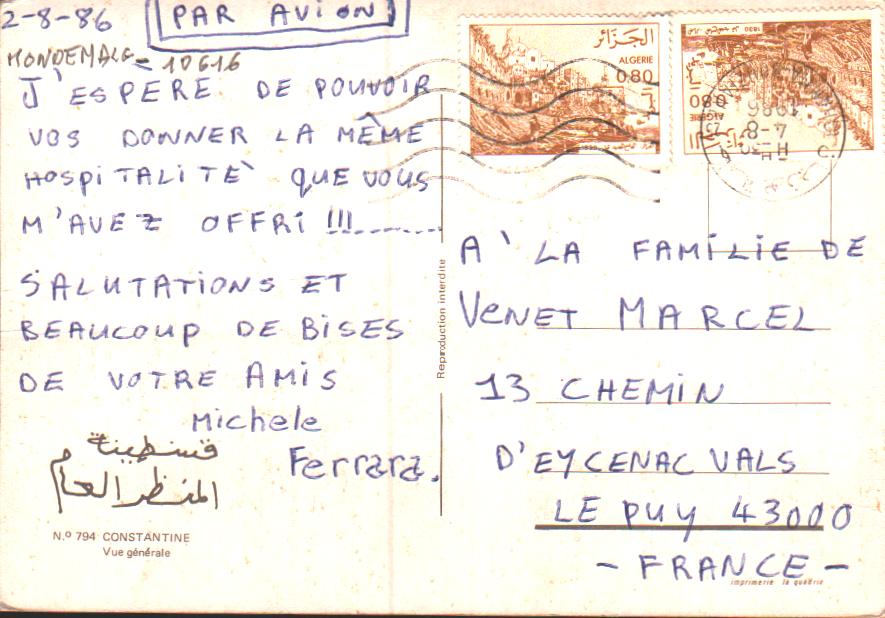 2-8-86
PAR AVION
J'ESPERE DE POUVOIR
VOS DONNER LA MÊME
HOSPITALITE` QUE VOUS
M'AVEZ OFFRI !!!
SALUTATIONS ET
BEAUCOUP DE BISES
DE VOTRE AMIS
Michele
Ferrara.
قسنطينة
المنظر العام
N.º 794 CONSTANTINE
Vue générale
Reproduction interdite
الجزائر
ALGERIE
0.80
1830
ALGERIE
0.80
1986
4-8
A` LA FAMILIE DE
VENET MARCEL
13 CHEMIN
D'EYCENAC VALS
LE PUY 43000
- FRANCE -
imprimerie la